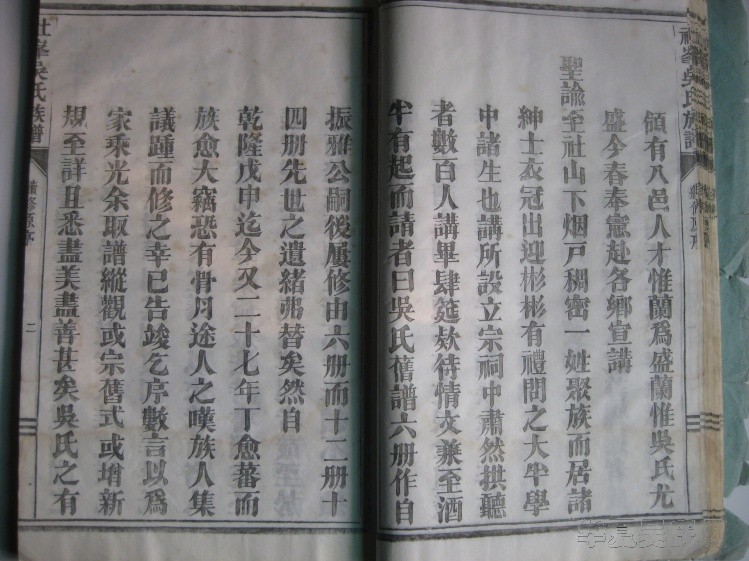 領有八邑人才惟蘭爲盛蘭惟吳氏尤
盛今春奉憲赴各鄉宣講
聖諭至社山下烟戶稠密一姓聚族而居諸
紳士衣冠出迎彬彬有禮問之大半學
中諸生也講所設立宗祠中肅然拱聽
者數百人講畢肆筵欵待情文兼至酒
半有起而請者曰吳氏舊譜六册作自
振雅公嗣後屢修由六册而十二册十
四册先世之遺緒弗替矣然自
乾隆戊申迄今又二十七年丁愈蕃而
族愈大竊恐有骨肉途人之嘆族人集
議踵而修之幸已告竣乞序數言以爲
家乘光余取譜縱觀或宗舊式或增新
規至詳且悉盡美盡善甚矣吳氏之有
社峯吳氏族譜
續修原序
二